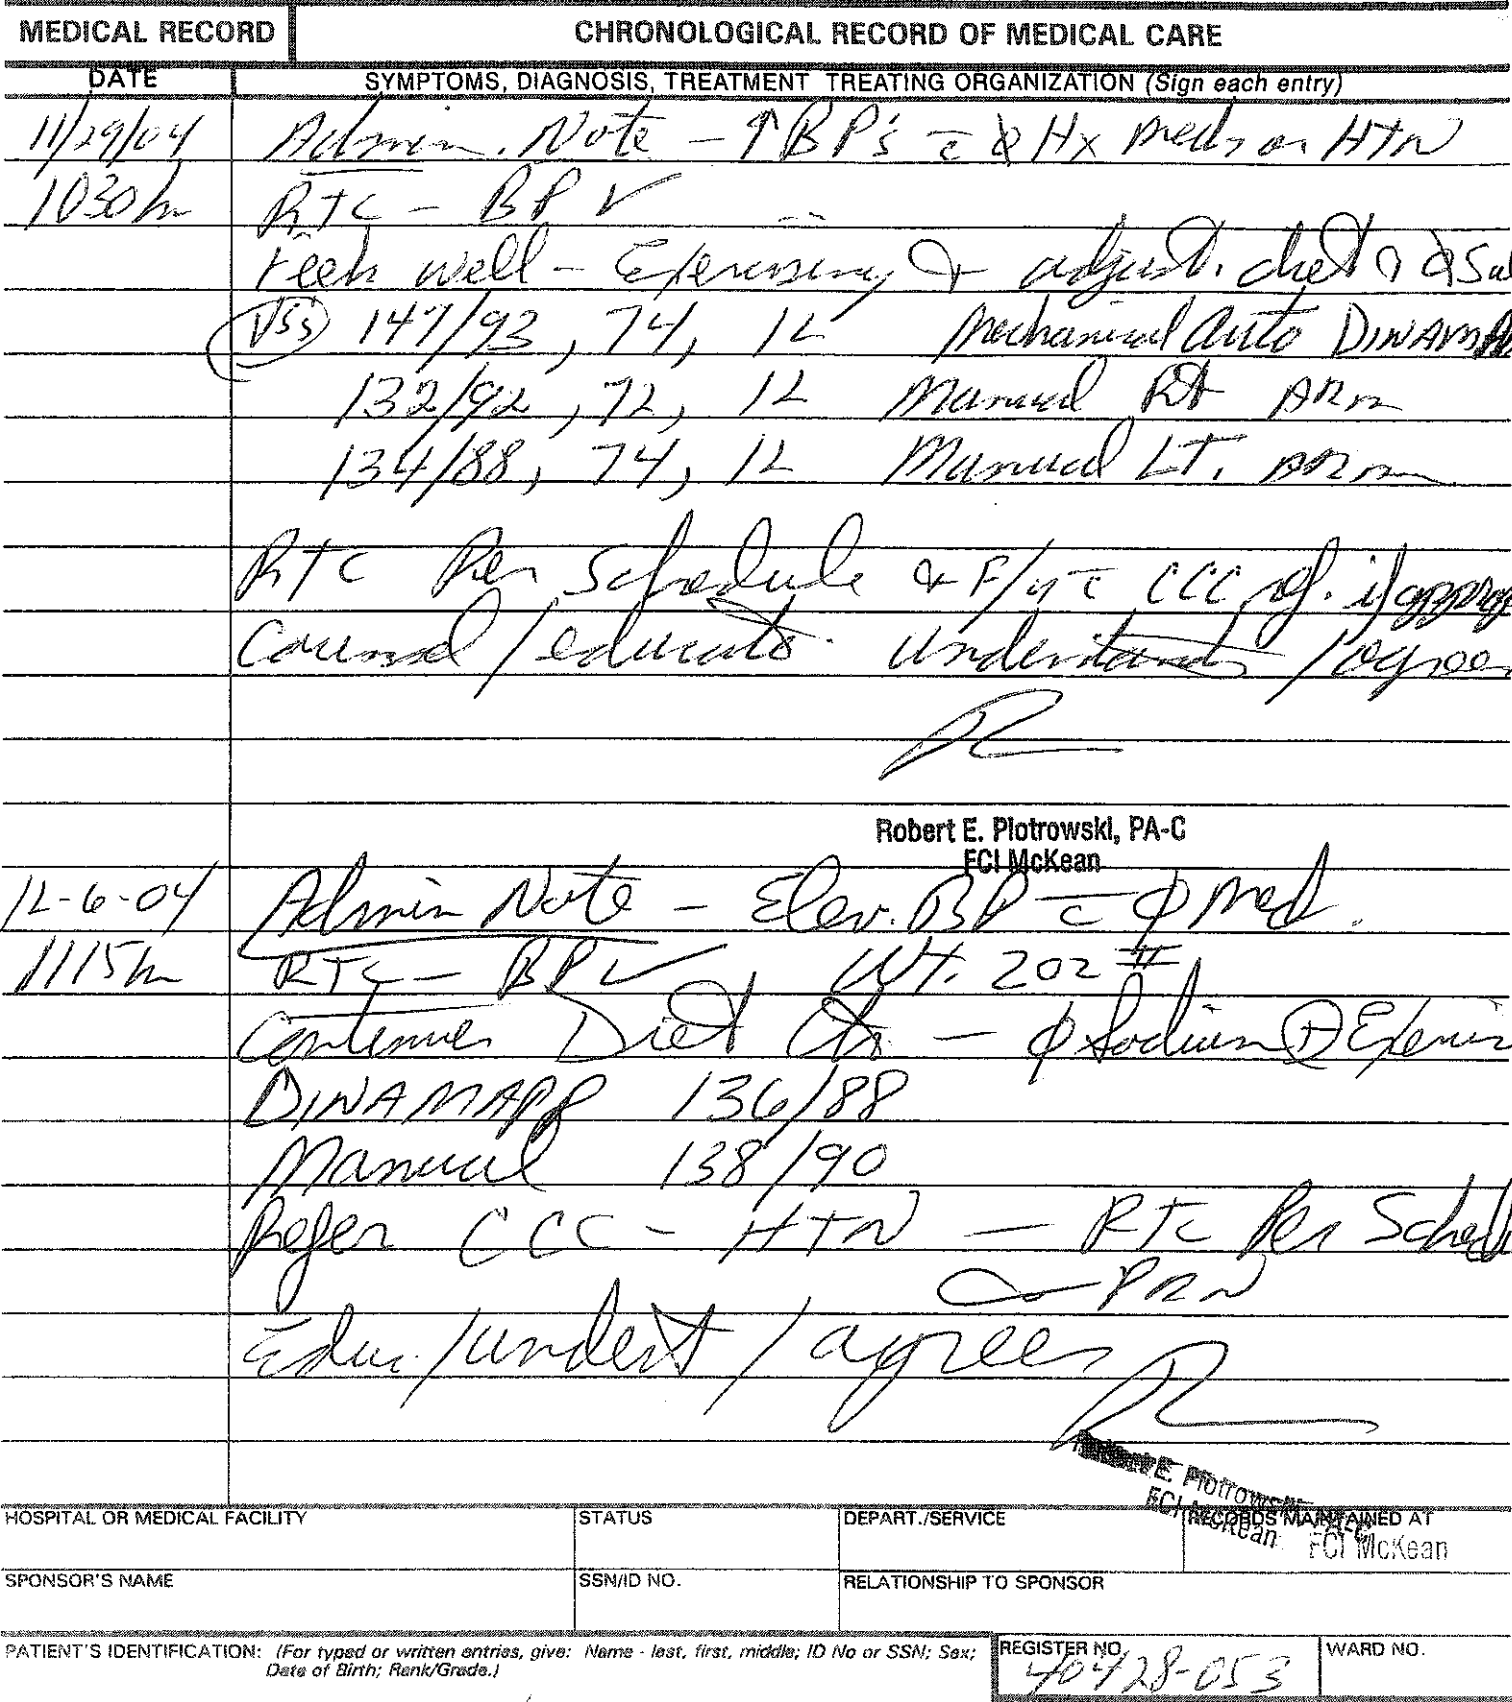 MEDICAL RECORD CHRONOLOGICAL RECORD OF MEDICAL CARE
DATE SYMPTOMS, DIAGNOSIS, TREATMENT TREATING ORGANIZATION (Sign each entry)
11/29/04 Admin. Note - ↑BP's c̄ Hx meds or HTN
1030h RTC - BP ✓
Feels well - Exercising & adjust. diet
VSS 147/93, 74, 12 Mechanical Auto
132/92, 72, 12 Manual Rt ARM
134/88, 74, 12 Manual LT. ARM
RTC Per Schedule & F/u c̄ CCC if
Counsel/educate. understands/agrees
Robert E. Piotrowski, PA-C
FCI McKean
12-6-04 Admin Note - Elev. BP c̄ φ med.
1115h RTC - BP ✓ WT. 202 #
Continues Diet - φ Sodium ⊕
DINAMAPP 136/88
Manual 138/90
Refer CCC - HTN - RTC Per
PRN
Educ./underst/agrees
E. Piotrowski
FCI McKean
HOSPITAL OR MEDICAL FACILITY STATUS DEPART./SERVICE RECORDS MAINTAINED AT
FCI McKean
SPONSOR'S NAME SSN/ID NO. RELATIONSHIP TO SPONSOR
PATIENT'S IDENTIFICATION: (For typed or written entries, give: Name - last, first, middle; ID No or SSN; Sex; REGISTER NO. WARD NO.
Date of Birth; Rank/Grade.) 40428-053